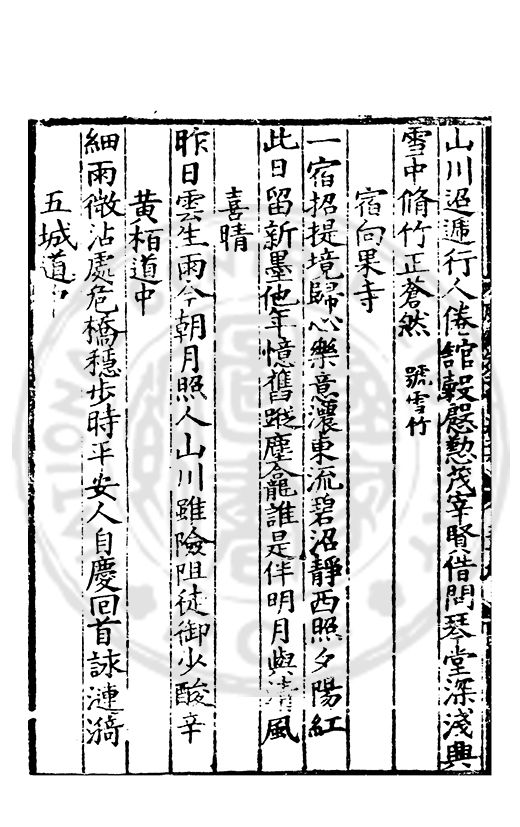 山川迢遞行人倦舘穀慇懃茂宰賢借問琴堂深淺興
雪中脩竹正蒼然 號雪竹
宿向果寺
一宿招提境歸心樂意濃東流碧沼靜西照夕陽紅
此日留新墨他年憶舊蹤塵龕誰是伴明月與清風
喜晴
昨日雲生雨今朝月照人山川雖險阻徒御少酸辛
黄栢道中
細雨微沾處危橋穩步時平安人自慶回首詠漣漪
五城道中